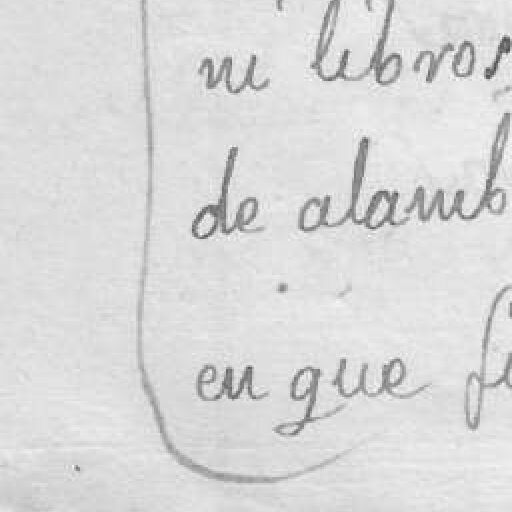 ni libros
de alamb
en que